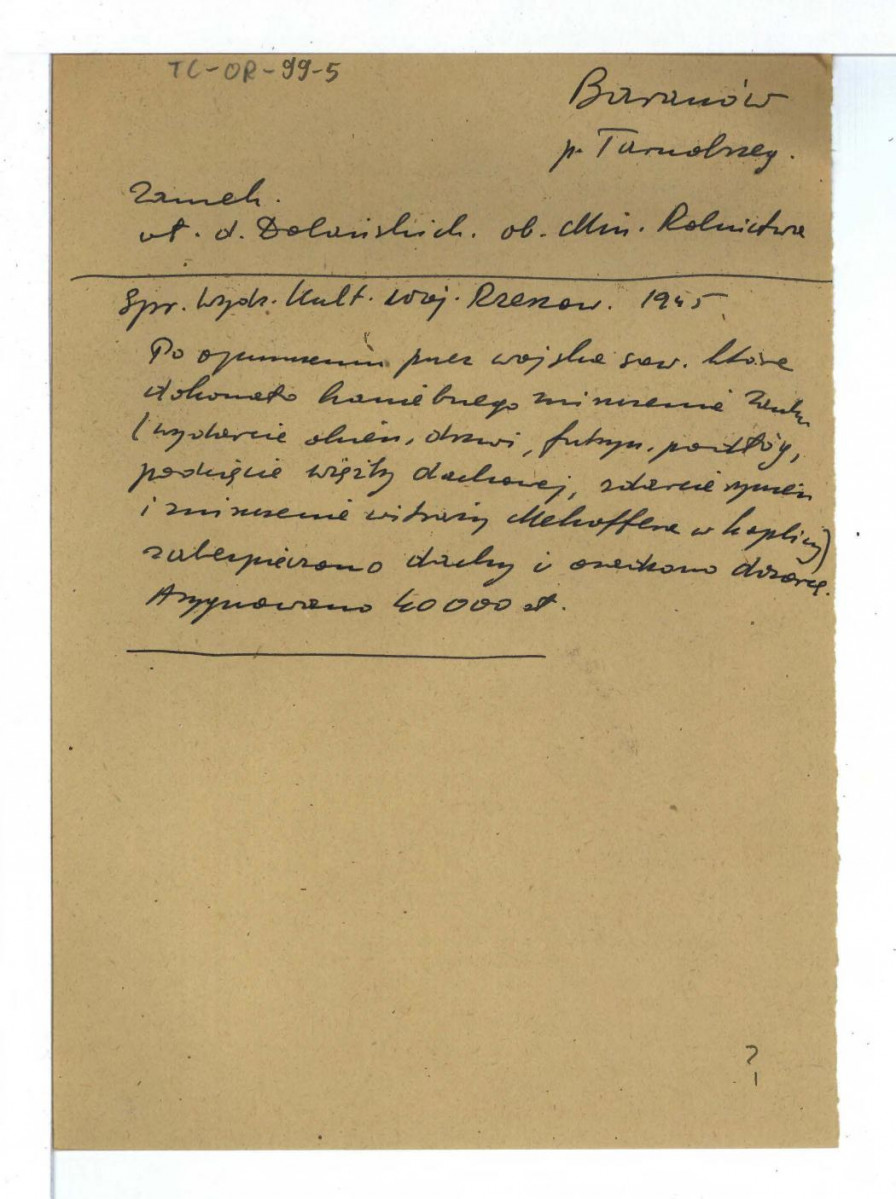 TC-OR-99-5
Baranów
p. Tarnobrzeg.
Zamek.
wł. d. Dolańskich. ob. Min. Rolnictwa
Spr. Wydz. Kult. Woj. Rzeszow. 1945
Po opuszczeniu przez wojska sow. które
dokonało haniebnego zniszczenia zamku
(wydarcie okien, drzwi, futryn, podłóg,
podcięcie więźby dachowej, zdarcie rynien
i zniszczenie witraży Mehoffera w kaplicy)
zabezpieczono dachy i oszklono dozorcę.
Asygnowano 40000 zł.
?